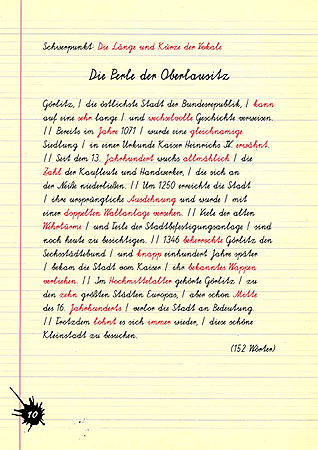 Schwerpunkt: Die Länge und Kürze der Vokale
Die Perle der Oberlausitz
Görlitz, | die östlichste Stadt der Bundesrepublik, | kann
auf eine sehr lange | und wechselvolle Geschichte verweisen.
|| Bereits im Jahre 1071 | wurde eine gleichnamige
Siedlung | in einer Urkunde Kaiser Heinrichs IV. erwähnt.
|| Seit dem 13. Jahrhundert wuchs allmählich | die
Zahl der Kaufleute und Handwerker, | die sich an
der Neiße niederließen. || Um 1250 erreichte die Stadt
| ihre ursprüngliche Ausdehnung und wurde | mit
einer doppelten Wallanlage versehen. || Viele der alten
Wehrtürme | und Teile der Stadtbefestigungsanlage | sind
noch heute zu besichtigen. || 1346 beherrschte Görlitz den
Sechsstädtebund | und knapp einhundert Jahre später
| bekam die Stadt vom Kaiser | ihr bekanntes Wappen
verliehen. || Im Hochmittelalter gehörte Görlitz | zu
den zehn größten Städten Europas, | aber schon Mitte
des 16. Jahrhunderts | verlor die Stadt an Bedeutung.
|| Trotzdem lohnt es sich immer wieder, | diese schöne
Kleinstadt zu besuchen.
(152 Wörter)
10